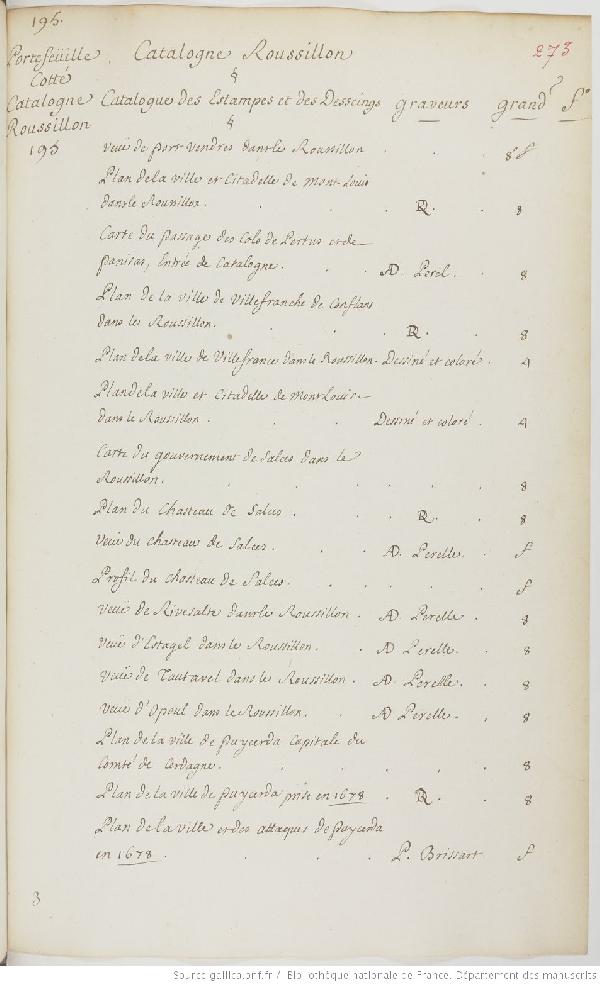 195.
273
Portefeüille Catalogne Roussillon
Cotté §
Catalogne Catalogue des Estampes et des Desseings graveurs grandr fo
Roussillon §
195 veüe de port vendres dans le Roussillon . . 8 f
Plan de la ville et Citadelle de Mont-Louis
dans le Roussillon. . . R. . 8
Carte du passage des Cols de Pertus et de
panisas, Entrée de Catalogne. . . AD Perel. . 8
Plan de la ville de Villefranche de Conflans
dans les Roussillon. . . . R. . 8
Plan de la ville de Villefrance dans le Roussillon. Dessiné et coloré. 4
Plan de la ville et Citadelle de Mont Louis
dans le Roussillon. . . Dessiné et coloré. 4
Carte du gouvernement de Salces dans le
Roussillon. . . . . . 8
Plan du Chasteau de Salces . . . R. . 8
Veüe du chasteau de Salces. . . AD. Perelle. . f
Profil du chasteau de Salces. . . . . f
veüe de Rivesalte dans le Roussillon. AD. Perelle. . 8
Veüe d'Estagel dans le Roussillon. . AD Perelle. 8
Veüe de Tautavel dans le Roussillon. AD. Perelle. . 8
Veüe d'Opoul dans le Roussillon. . AD Perelle. . 8
Plan de la ville de puycerda Capitale du
Comté de Cerdagne. . . . . . 8
Plan de la ville de puycerda prise en 1678 . R. . 8
Plan de la ville et des attaques de puycerda
en 1678 . . . . P. Brissart f
3
Source gallica.bnf.fr / Bibliothèque nationale de France. Département des manuscrits